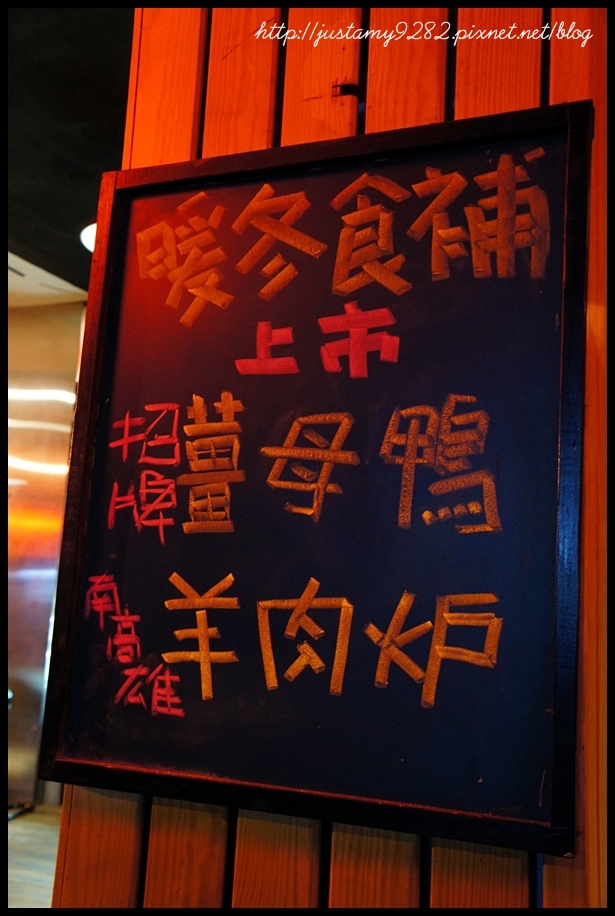 http://justamy9282.pixnet.net/blog
暖冬食補
上市
招牌 薑母鴨
南高雄 羊肉炉